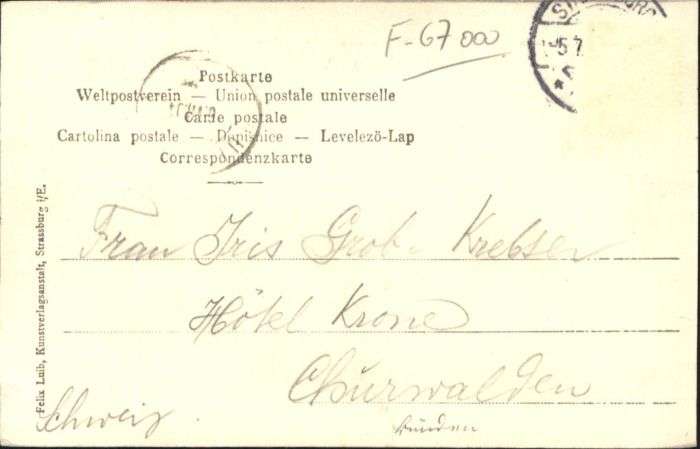 F-67000
5.7
Postkarte
Weltpostverein — Union postale universelle
Carte postale
Cartolina postale — Dopisnice — Levelező-Lap
Correspondenzkarte
Frau Iris Grob-Krebser
Hôtel Krone
Churwalden
Bünden
Schweiz.
Felix Luib, Kunstverlagsanstalt, Strassburg i/E.